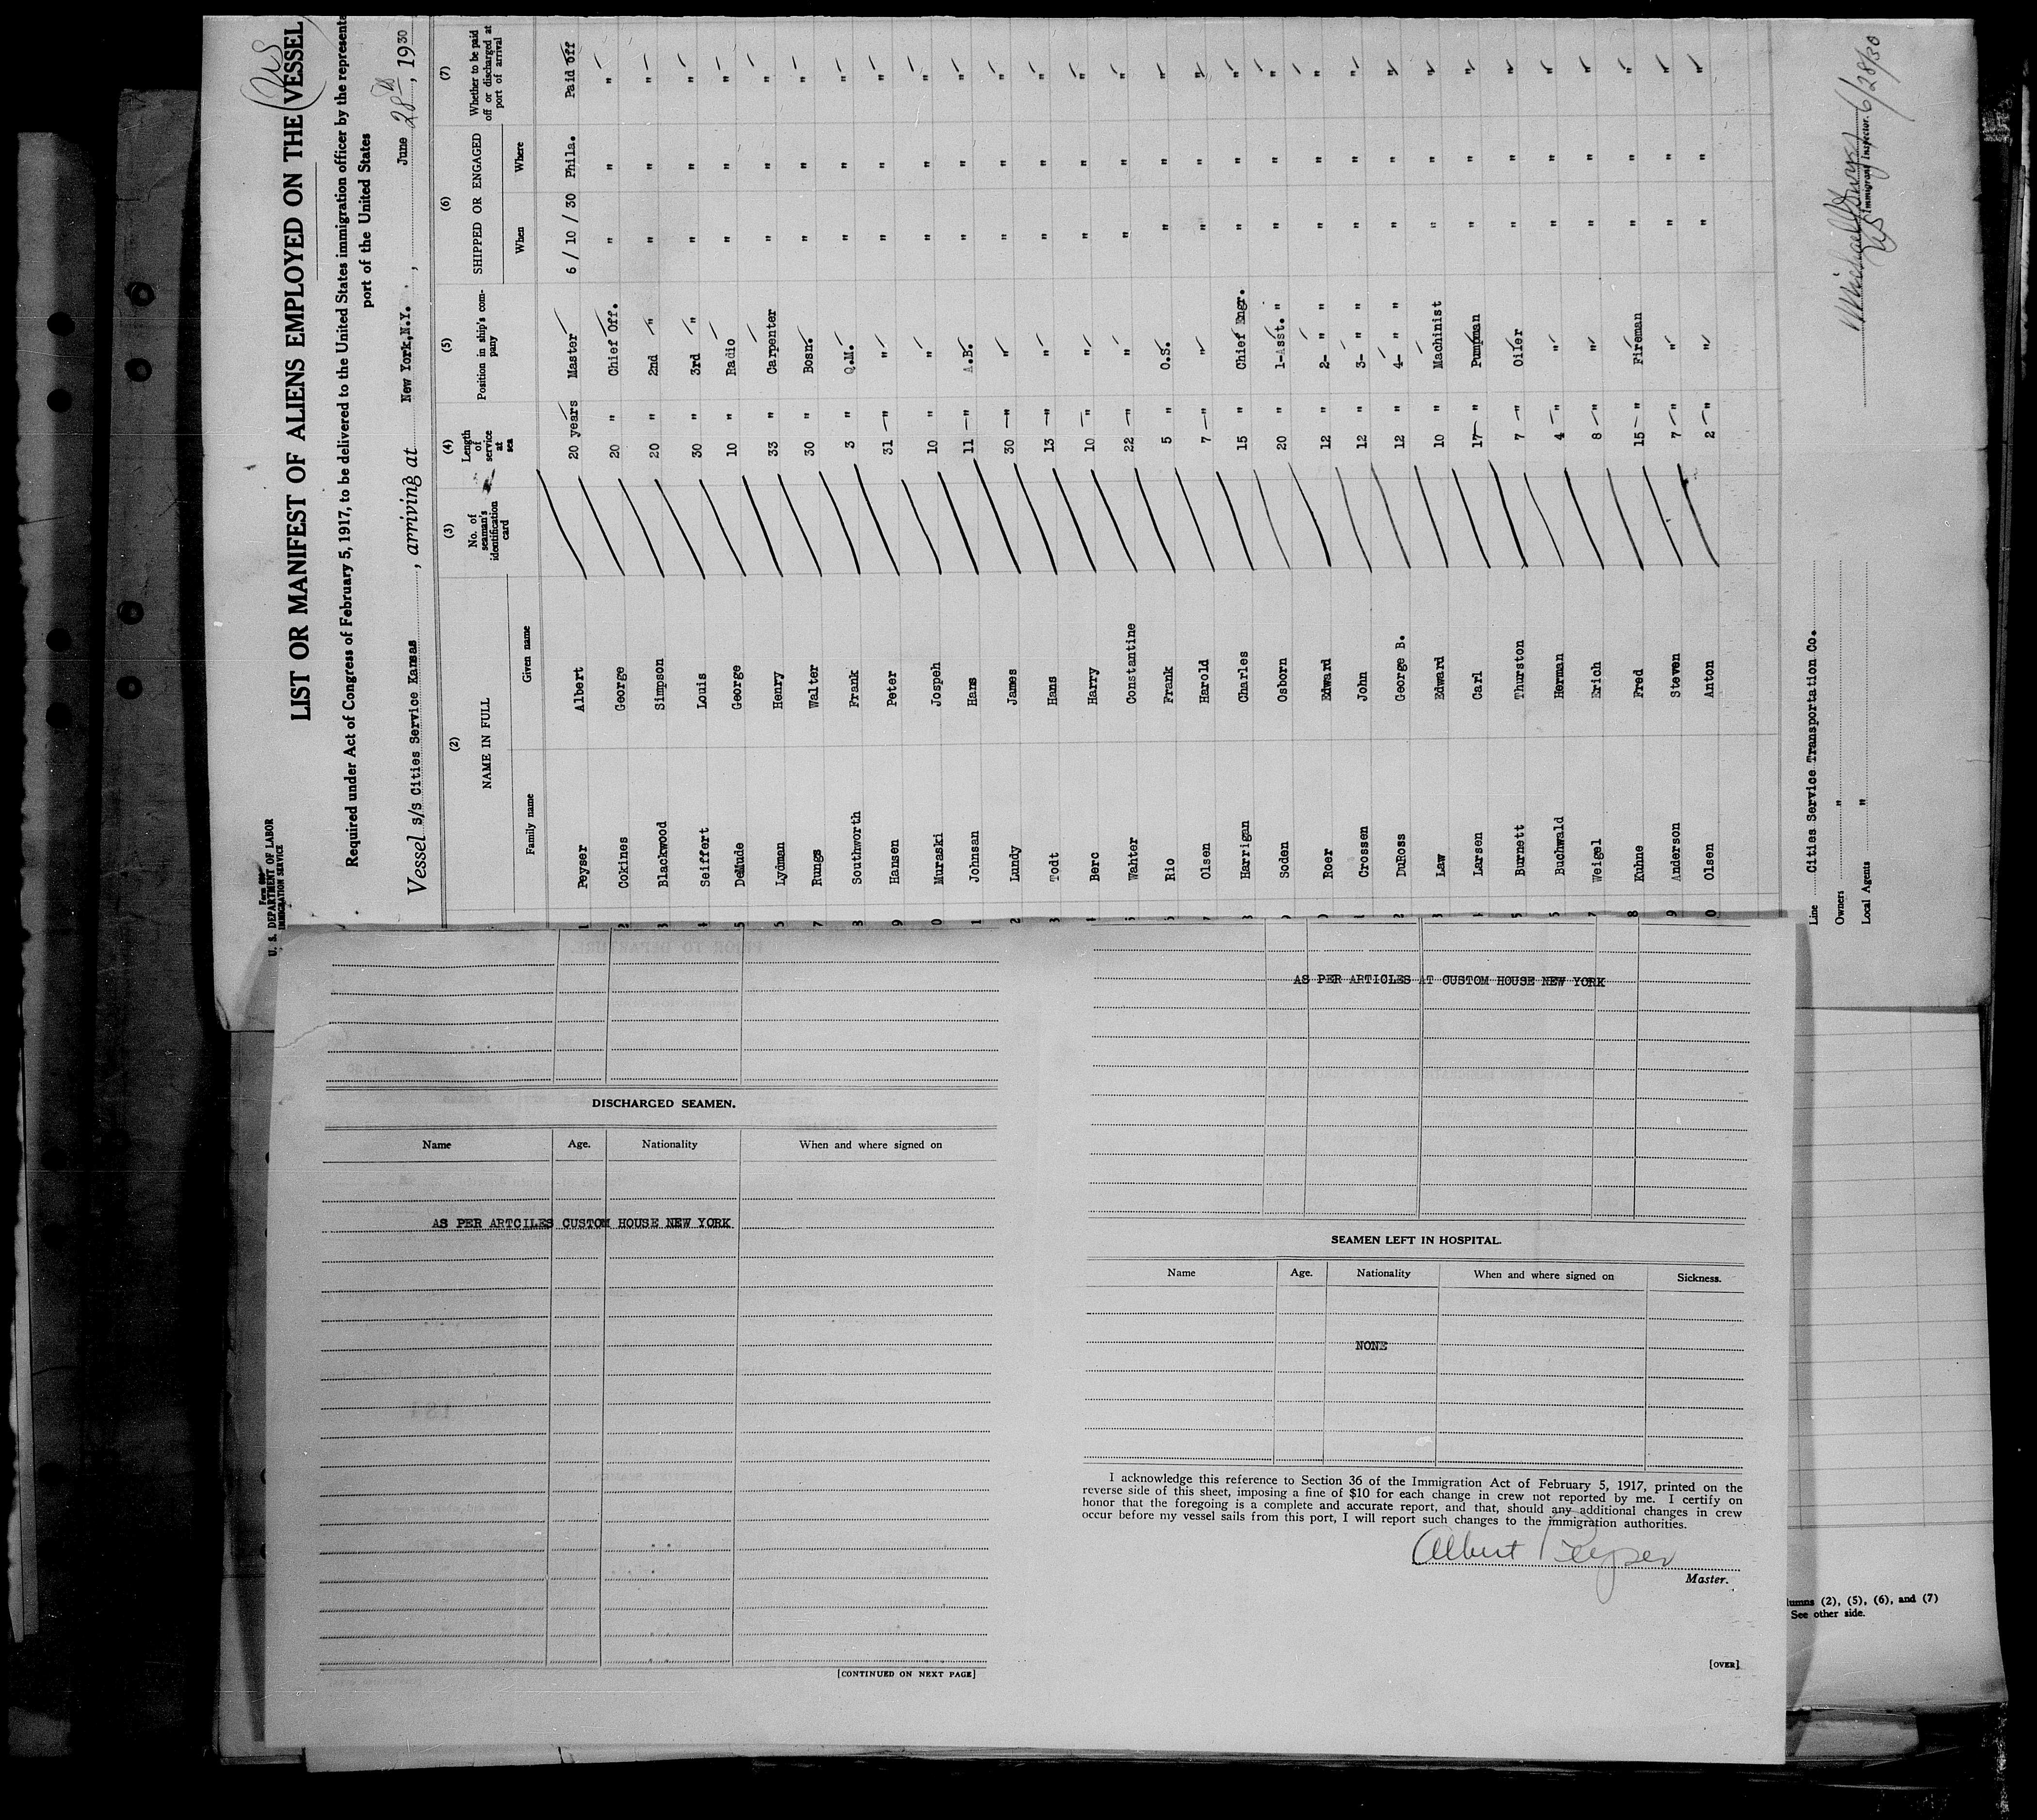 Form 689
U. S. DEPARTMENT OF LABOR
IMMIGRATION SERVICE
US
LIST OR MANIFEST OF ALIENS EMPLOYED ON THE VESSEL
Required under Act of Congress of February 5, 1917, to be delivered to the United States immigration officer by the representa
port of the United States
Vessel s/s Cities Service Kansas, arriving at New York,N.Y., June 28th, 1930
(2) (3) (4) (5) (6) (7)
NAME IN FULL No. of seaman's identification card Length of service at sea Position in ship's company SHIPPED OR ENGAGED Whether to be paid off or discharged at port of arrival
Family name Given name When Where
1 Peyser Albert 20 years Master 6 / 10 / 30 Phila. Paid off
2 Cokines George 20 " Chief Off. " " "
3 Blackwood Simpson 20 " 2nd " " " "
4 Seiffert Louis 30 " 3rd " " " "
5 DeMude George 10 " Radio " " "
Lydman Henry 33 " Carpenter " " "
7 Rungs Walter 30 " Bosn. " " "
Southworth Frank 3 " Q.M. " " "
9 Hansen Peter 31 " " " " "
0 Muraski Jospeh 10 " " " " "
1 Johnsan Hans 11 " A.B. " " "
2 Lundy James 30 " " " " "
3 Todt Hans 13 " " " " "
4 Berc Harry 10 " " " " "
5 Wahter Constantine 22 " " " " "
Rio Frank 5 " O.S. " " "
7 Olsen Harold 7 " " " " "
8 Harrigan Charles 15 " Chief Engr. " " "
9 Soden Osborn 20 " 1-Asst. " " " "
0 Roer Edward 12 " 2- " " " " "
1 Crossen John 12 " 3- " " " " "
2 DuRoss George B. 12 " 4- " " " " "
3 Law Edward 10 " Machinist " " "
4 Larsen Carl 17 " Pumpman " " "
5 Burnett Thurston 7 " Oiler " " "
Buchwald Herman 4 " " " " "
7 Weigel Erich 8 " " " " "
8 Kuhne Fred 15 " Fireman " " "
9 Anderson Steven 7 " " " " "
0 Olsen Anton 2 " " " " "
Line Cities Service Transportation Co.
Owners "
Local Agents "
US Immigrant Inspector. 6/28/30
DISCHARGED SEAMEN.
Name Age. Nationality When and where signed on
AS PER ARTCILES CUSTOM HOUSE NEW YORK
[CONTINUED ON NEXT PAGE]
AS PER ARTICLES AT CUSTOM HOUSE NEW YORK
SEAMEN LEFT IN HOSPITAL.
Name Age. Nationality When and where signed on Sickness.
NONE
I acknowledge this reference to Section 36 of the Immigration Act of February 5, 1917, printed on the
reverse side of this sheet, imposing a fine of $10 for each change in crew not reported by me. I certify on
honor that the foregoing is a complete and accurate report, and that, should any additional changes in crew
occur before my vessel sails from this port, I will report such changes to the immigration authorities.
Albert Peyser
Master.
[OVER]
lumns (2), (5), (6), and (7)
See other side.